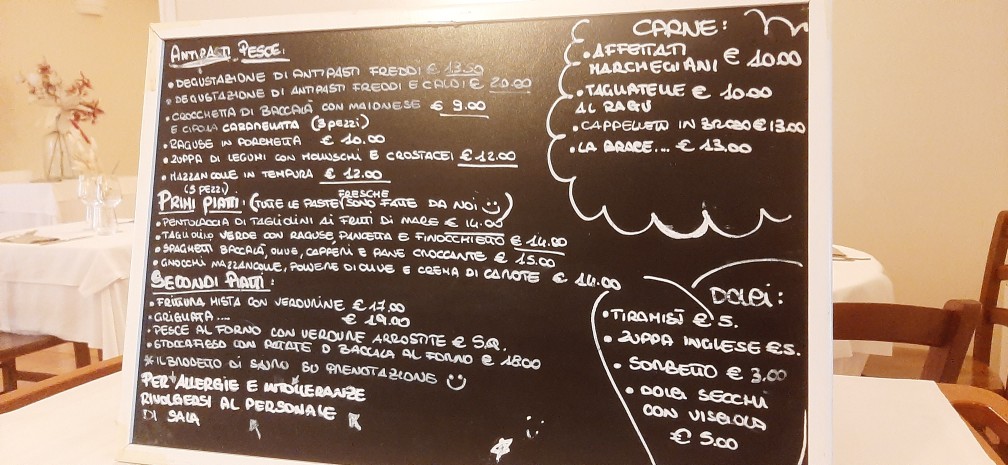 ANTIPASTI PESCE:
• DEGUSTAZIONE DI ANTIPASTI FREDDI € 13.50
• DEGUSTAZIONE DI ANTIPASTI FREDDI E CALDI € 20.00
• CROCCHETTA DI BACCALÀ CON MAIONESE € 9.00
E CIPOLLA CARAMELLATA (3 pezzi)
• RAGUSE IN PORCHETTA € 10.00
• ZUPPA DI LEGUMI CON MOLLUSCHI E CROSTACEI € 12.00
• MAZZANCOLLE IN TEMPURA € 12.00
(5 PEZZI)
PRIMI PIATTI: (TUTTE LE PASTE FRESCHE SONO FATTE DA NOI)
• PENTOLACCIA DI TAGLIOLINI AI FRUTTI DI MARE € 14.00
• TAGLIOLINO VERDE CON RAGUSE, PANCETTA E FINOCCHIETTO € 14.00
• SPAGHETTI BACCALÀ, OLIVE, CAPPERI E PANE CROCCANTE € 15.00
• GNOCCHI MAZZANCOLLE, POLVERE DI OLIVE E CREMA DI CAROTE € 14.00
SECONDI PIATTI:
• FRITTURA MISTA CON VERDURINE € 17.00
• GRIGLIATA .... € 19.00
• PESCE AL FORNO CON VERDURE ARROSTITE € S.Q.
• STOCCAFISSO CON PATATE O BACCALÀ AL FORNO € 18.00
* IL BRODETTO DI SAURO SU PRENOTAZIONE
PER ALLERGIE E INTOLLERANZE
RIVOLGERSI AL PERSONALE
DI SALA
CARNE:
• AFFETTATI
MARCHEGIANI € 10.00
• TAGLIATELLE € 10.00
AL RAGÙ
• CAPPELLETTI IN BRODO € 13.00
• LA BRACE... € 13.00
DOLCI:
• TIRAMISÙ € 5.
• ZUPPA INGLESE € 5.
• SORBETTO € 3.00
• DOLCI SECCHI
CON VISCIOLA
€ 5.00